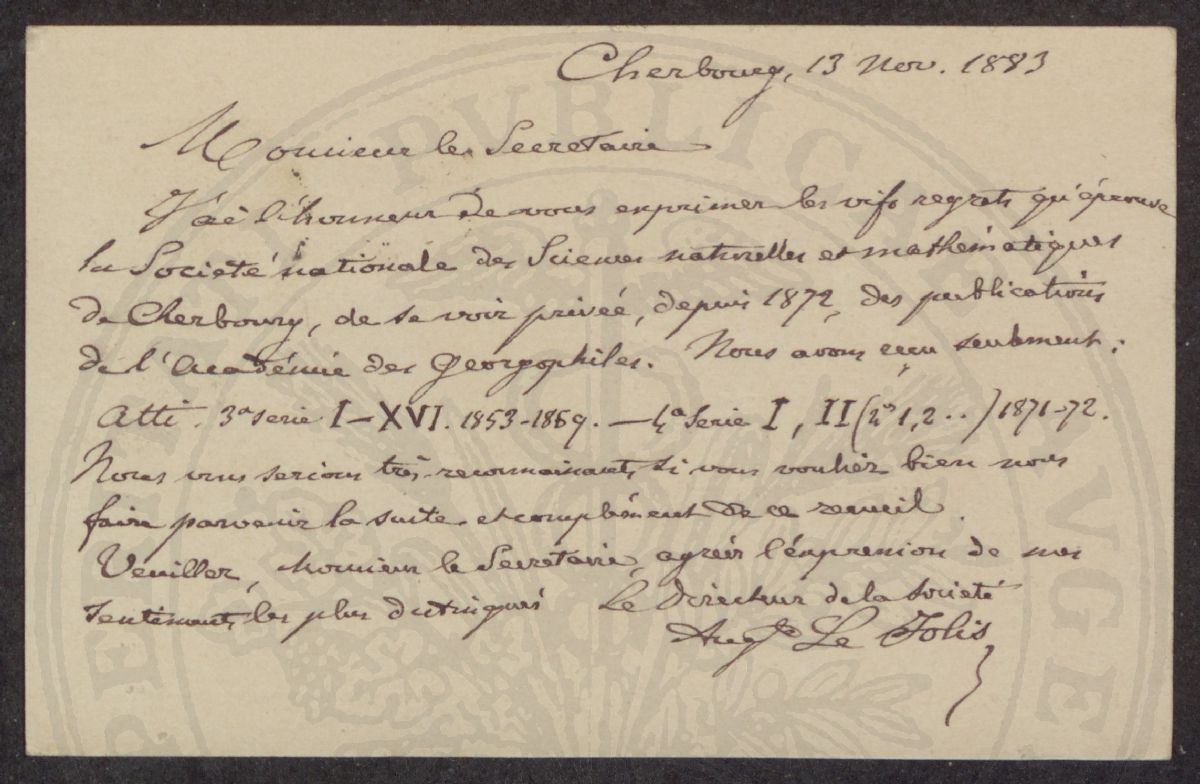 Cherbourg, 13 Nov. 1883
Monsieur le Secretaire
J'ai l'honneur de vous exprimer les vifs regrets qu'éprouve
la Société nationale des Sciences naturelles et mathématiques
de Cherbourg, de se voir privée, depuis 1872, des publications
de l'Académie des Georgophiles. Nous avons reçu seulement:
Atti. 3a serie I-XVI. 1853-1869. — 4a Serie I, II (1, 2 . .) 1871-72.
Nous vous serions très-reconnaissants, si vous vouliez bien nous
faire parvenir la suite et complément de ce recueil.
Veuillez, Monsieur le Secretaire, agréer l'expression de mes
sentiments les plus distingués Le Directeur de la Société
Aug. Le Jolis
PVBLICAE